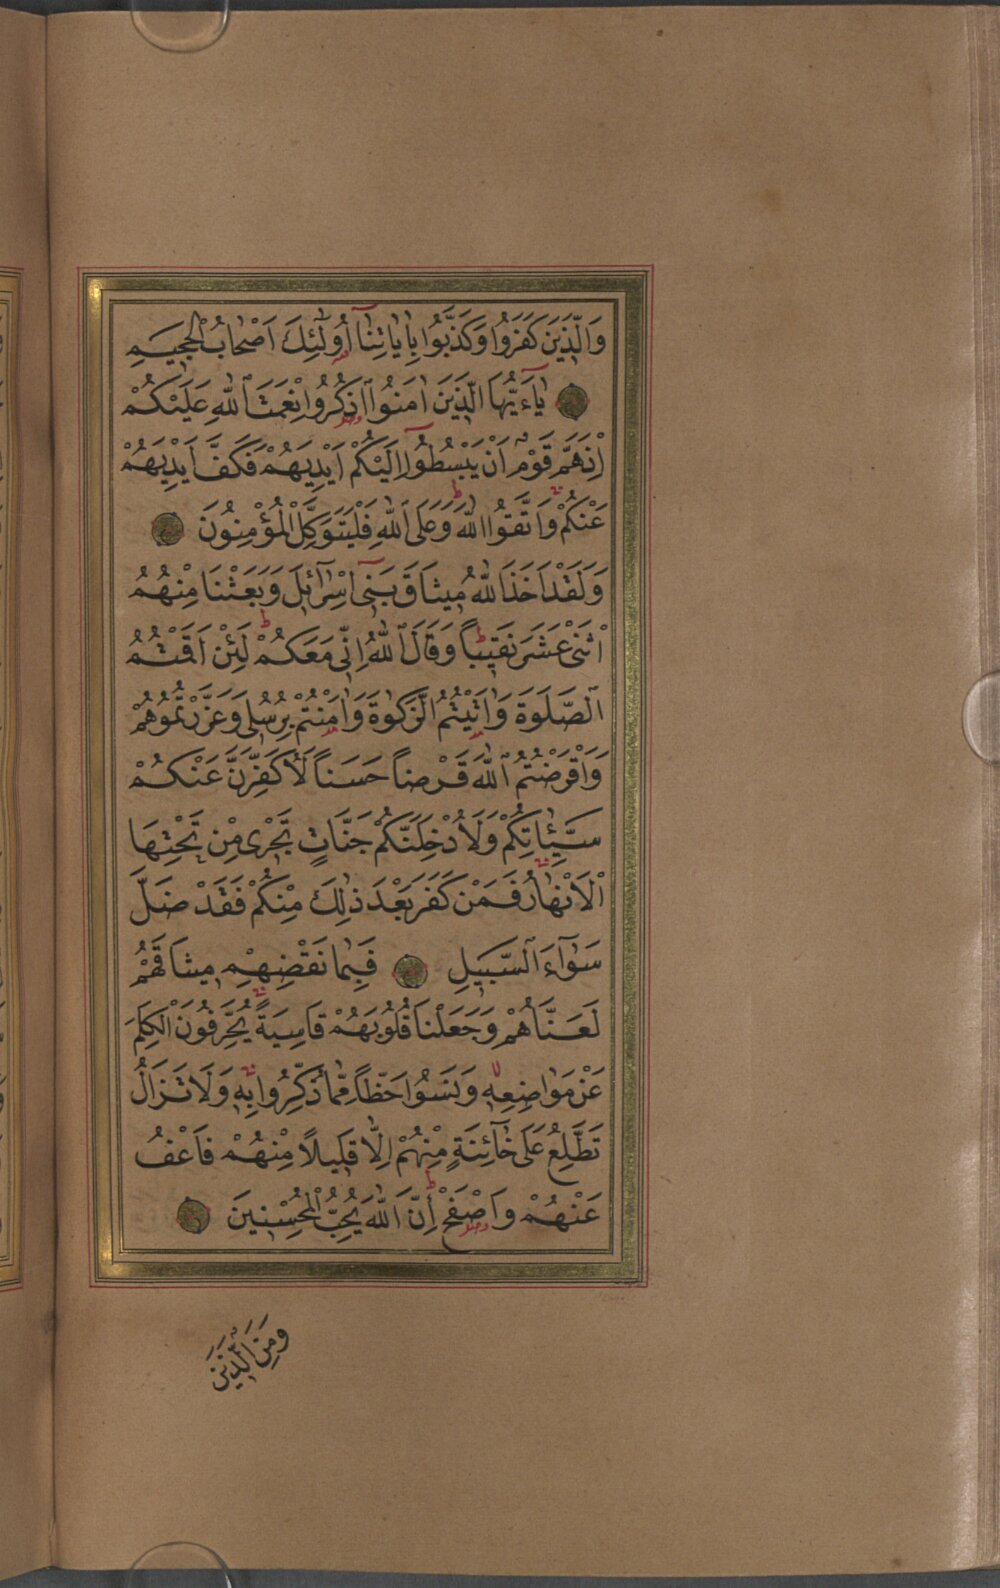 وَالَّذِينَ كَفَرُوا وَكَذَّبُوا بِاٰيَاتِنَٓا اُولٰٓئِكَ اَصْحَابُ الْجَحِيمِ
يَٓا اَيُّهَا الَّذِينَ اٰمَنُوا اذْكُرُوا نِعْمَتَ اللّٰهِ عَلَيْكُمْ
اِذْ هَمَّ قَوْمٌ اَنْ يَبْسُطُٓوا اِلَيْكُمْ اَيْدِيَهُمْ فَكَفَّ اَيْدِيَهُمْ
عَنْكُمْ وَاتَّقُوا اللّٰهَ وَعَلَى اللّٰهِ فَلْيَتَوَكَّلِ الْمُؤْمِنُونَ
وَلَقَدْ اَخَذَ اللّٰهُ مِيثَاقَ بَنِٓي اِسْرَٓائِلَ وَبَعَثْنَا مِنْهُمُ
اثْنَيْ عَشَرَ نَقِيبًا وَقَالَ اللّٰهُ اِنِّي مَعَكُمْ لَئِنْ اَقَمْتُمُ
الصَّلٰوةَ وَاٰتَيْتُمُ الزَّكٰوةَ وَاٰمَنْتُمْ بِرُسُلِي وَعَزَّرْتُمُوهُمْ
وَاَقْرَضْتُمُ اللّٰهَ قَرْضًا حَسَنًا لَاُكَفِّرَنَّ عَنْكُمْ
سَيِّـَٔاتِكُمْ وَلَاُدْخِلَنَّكُمْ جَنَّاتٍ تَجْرِي مِنْ تَحْتِهَا
الْاَنْهَارُ فَمَنْ كَفَرَ بَعْدَ ذٰلِكَ مِنْكُمْ فَقَدْ ضَلَّ
سَوَٓاءَ السَّبِيلِ فَبِمَا نَقْضِهِمْ مِيثَاقَهُمْ
لَعَنَّاهُمْ وَجَعَلْنَا قُلُوبَهُمْ قَاسِيَةً يُحَرِّفُونَ الْكَلِمَ
عَنْ مَوَاضِعِهِ وَنَسُوا حَظًّا مِمَّا ذُكِّرُوا بِهِ وَلَا تَزَالُ
تَطَّلِعُ عَلٰى خَٓائِنَةٍ مِنْهُمْ اِلَّا قَلِيلًا مِنْهُمْ فَاعْفُ
عَنْهُمْ وَاصْفَحْ اِنَّ اللّٰهَ يُحِبُّ الْمُحْسِنِينَ
وَمِنَ الَّذِينَ